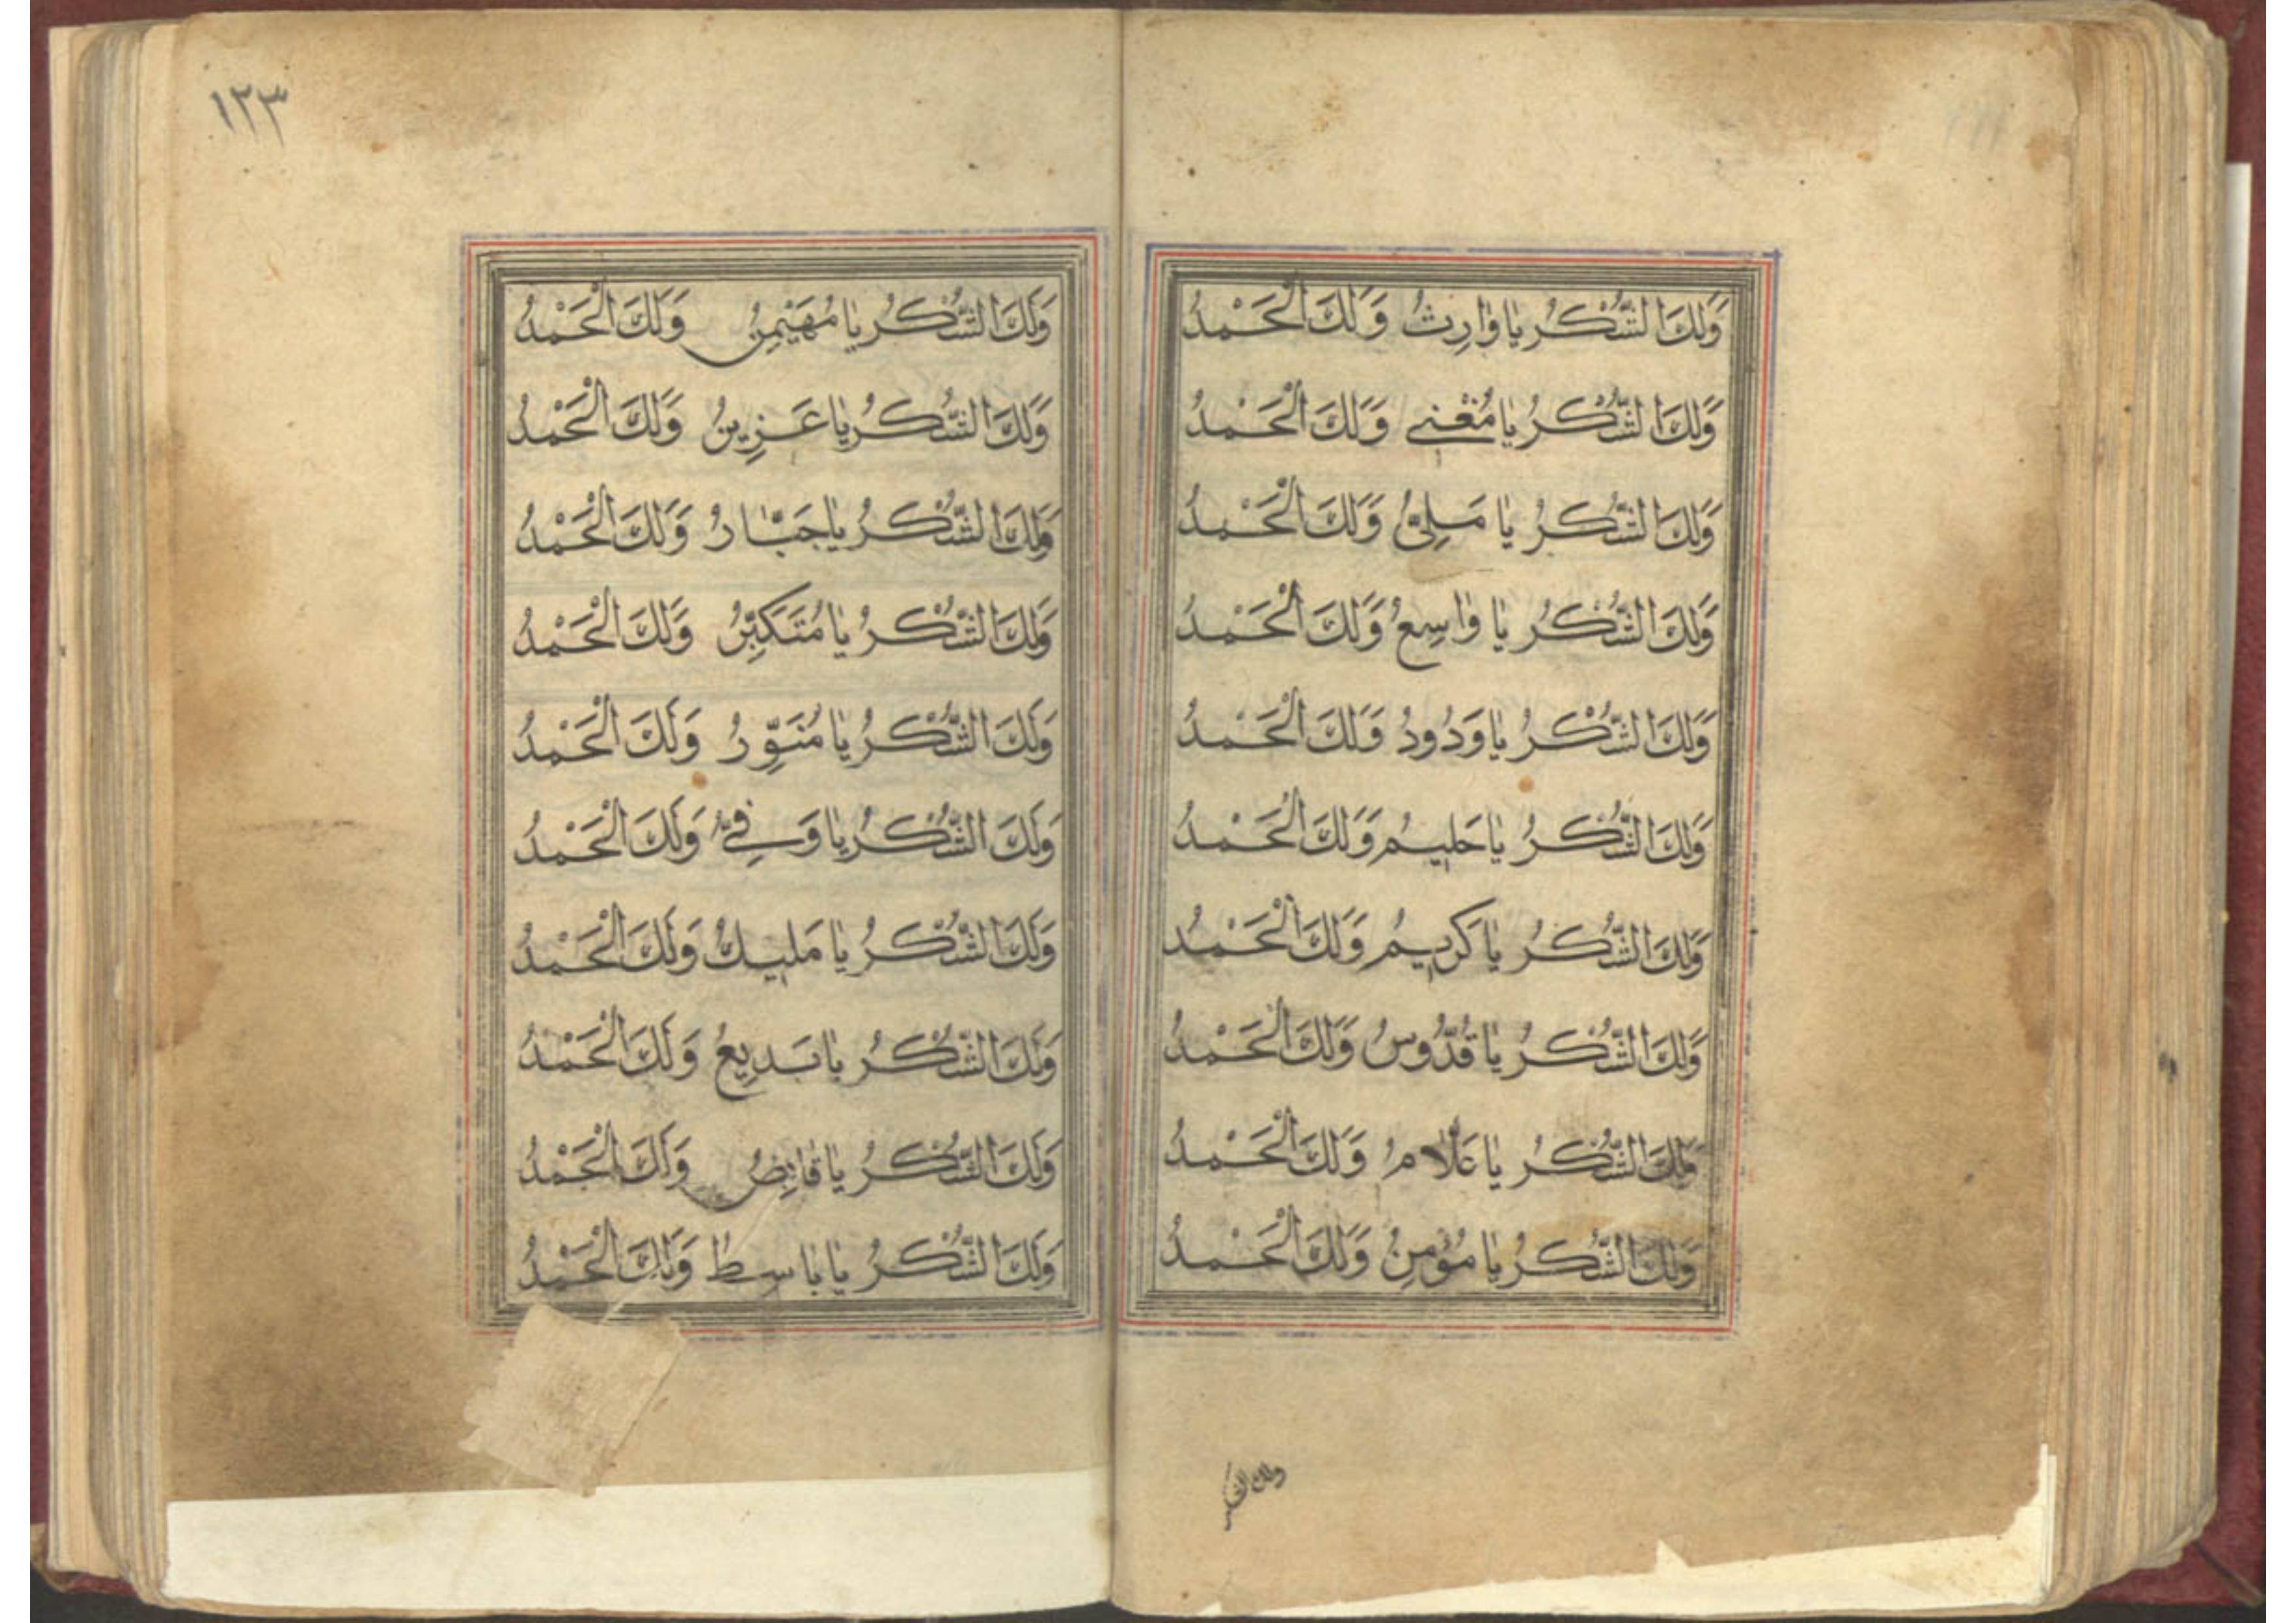 وَلَكَ الشُّكْرُ يَا وَارِثُ وَلَكَ الْحَمْدُ
وَلَكَ الشُّكْرُ يَا مُغْنِي وَلَكَ الْحَمْدُ
وَلَكَ الشُّكْرُ يَا مَلِيُّ وَلَكَ الْحَمْدُ
وَلَكَ الشُّكْرُ يَا وَاسِعُ وَلَكَ الْحَمْدُ
وَلَكَ الشُّكْرُ يَا وَدُودُ وَلَكَ الْحَمْدُ
وَلَكَ الشُّكْرُ يَا حَلِيمُ وَلَكَ الْحَمْدُ
وَلَكَ الشُّكْرُ يَا كَرِيمُ وَلَكَ الْحَمْدُ
وَلَكَ الشُّكْرُ يَا قُدُّوسُ وَلَكَ الْحَمْدُ
وَلَكَ الشُّكْرُ يَا عَلَّامُ وَلَكَ الْحَمْدُ
وَلَكَ الشُّكْرُ يَا مُؤْمِنُ وَلَكَ الْحَمْدُ
ولك الشكر
١٢٣
وَلَكَ الشُّكْرُ يَا مُهَيْمِنُ وَلَكَ الْحَمْدُ
وَلَكَ الشُّكْرُ يَا عَزِيزُ وَلَكَ الْحَمْدُ
وَلَكَ الشُّكْرُ يَا جَبَّارُ وَلَكَ الْحَمْدُ
وَلَكَ الشُّكْرُ يَا مُتَكَبِّرُ وَلَكَ الْحَمْدُ
وَلَكَ الشُّكْرُ يَا مُنَوِّرُ وَلَكَ الْحَمْدُ
وَلَكَ الشُّكْرُ يَا وَفِيُّ وَلَكَ الْحَمْدُ
وَلَكَ الشُّكْرُ يَا مَلِيكُ وَلَكَ الْحَمْدُ
وَلَكَ الشُّكْرُ يَا بَدِيعُ وَلَكَ الْحَمْدُ
وَلَكَ الشُّكْرُ يَا قَابِضُ وَلَكَ الْحَمْدُ
وَلَكَ الشُّكْرُ يَا بَاسِطُ وَلَكَ الْحَمْدُ